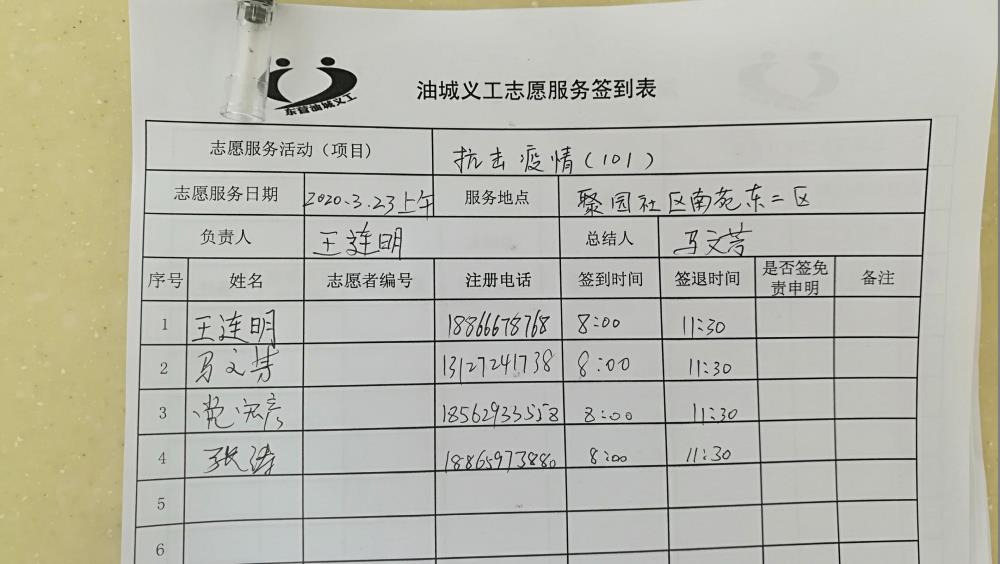 东营油城义工
油城义工志愿服务签到表
志愿服务活动（项目） 抗击疫情（101）
志愿服务日期 2020.3.23上午 服务地点 聚园社区南苑东二区
负责人 王连明 总结人 马文芳
序号 姓名 志愿者编号 注册电话 签到时间 签退时间 是否签免责申明 备注
1 王连明 18866678768 8:00 11:30
2 马文芳 13127241738 8:00 11:30
3 党宏彦 18562933558 8:00 11:30
4 张涛 18865973880 8:00 11:30
5
6